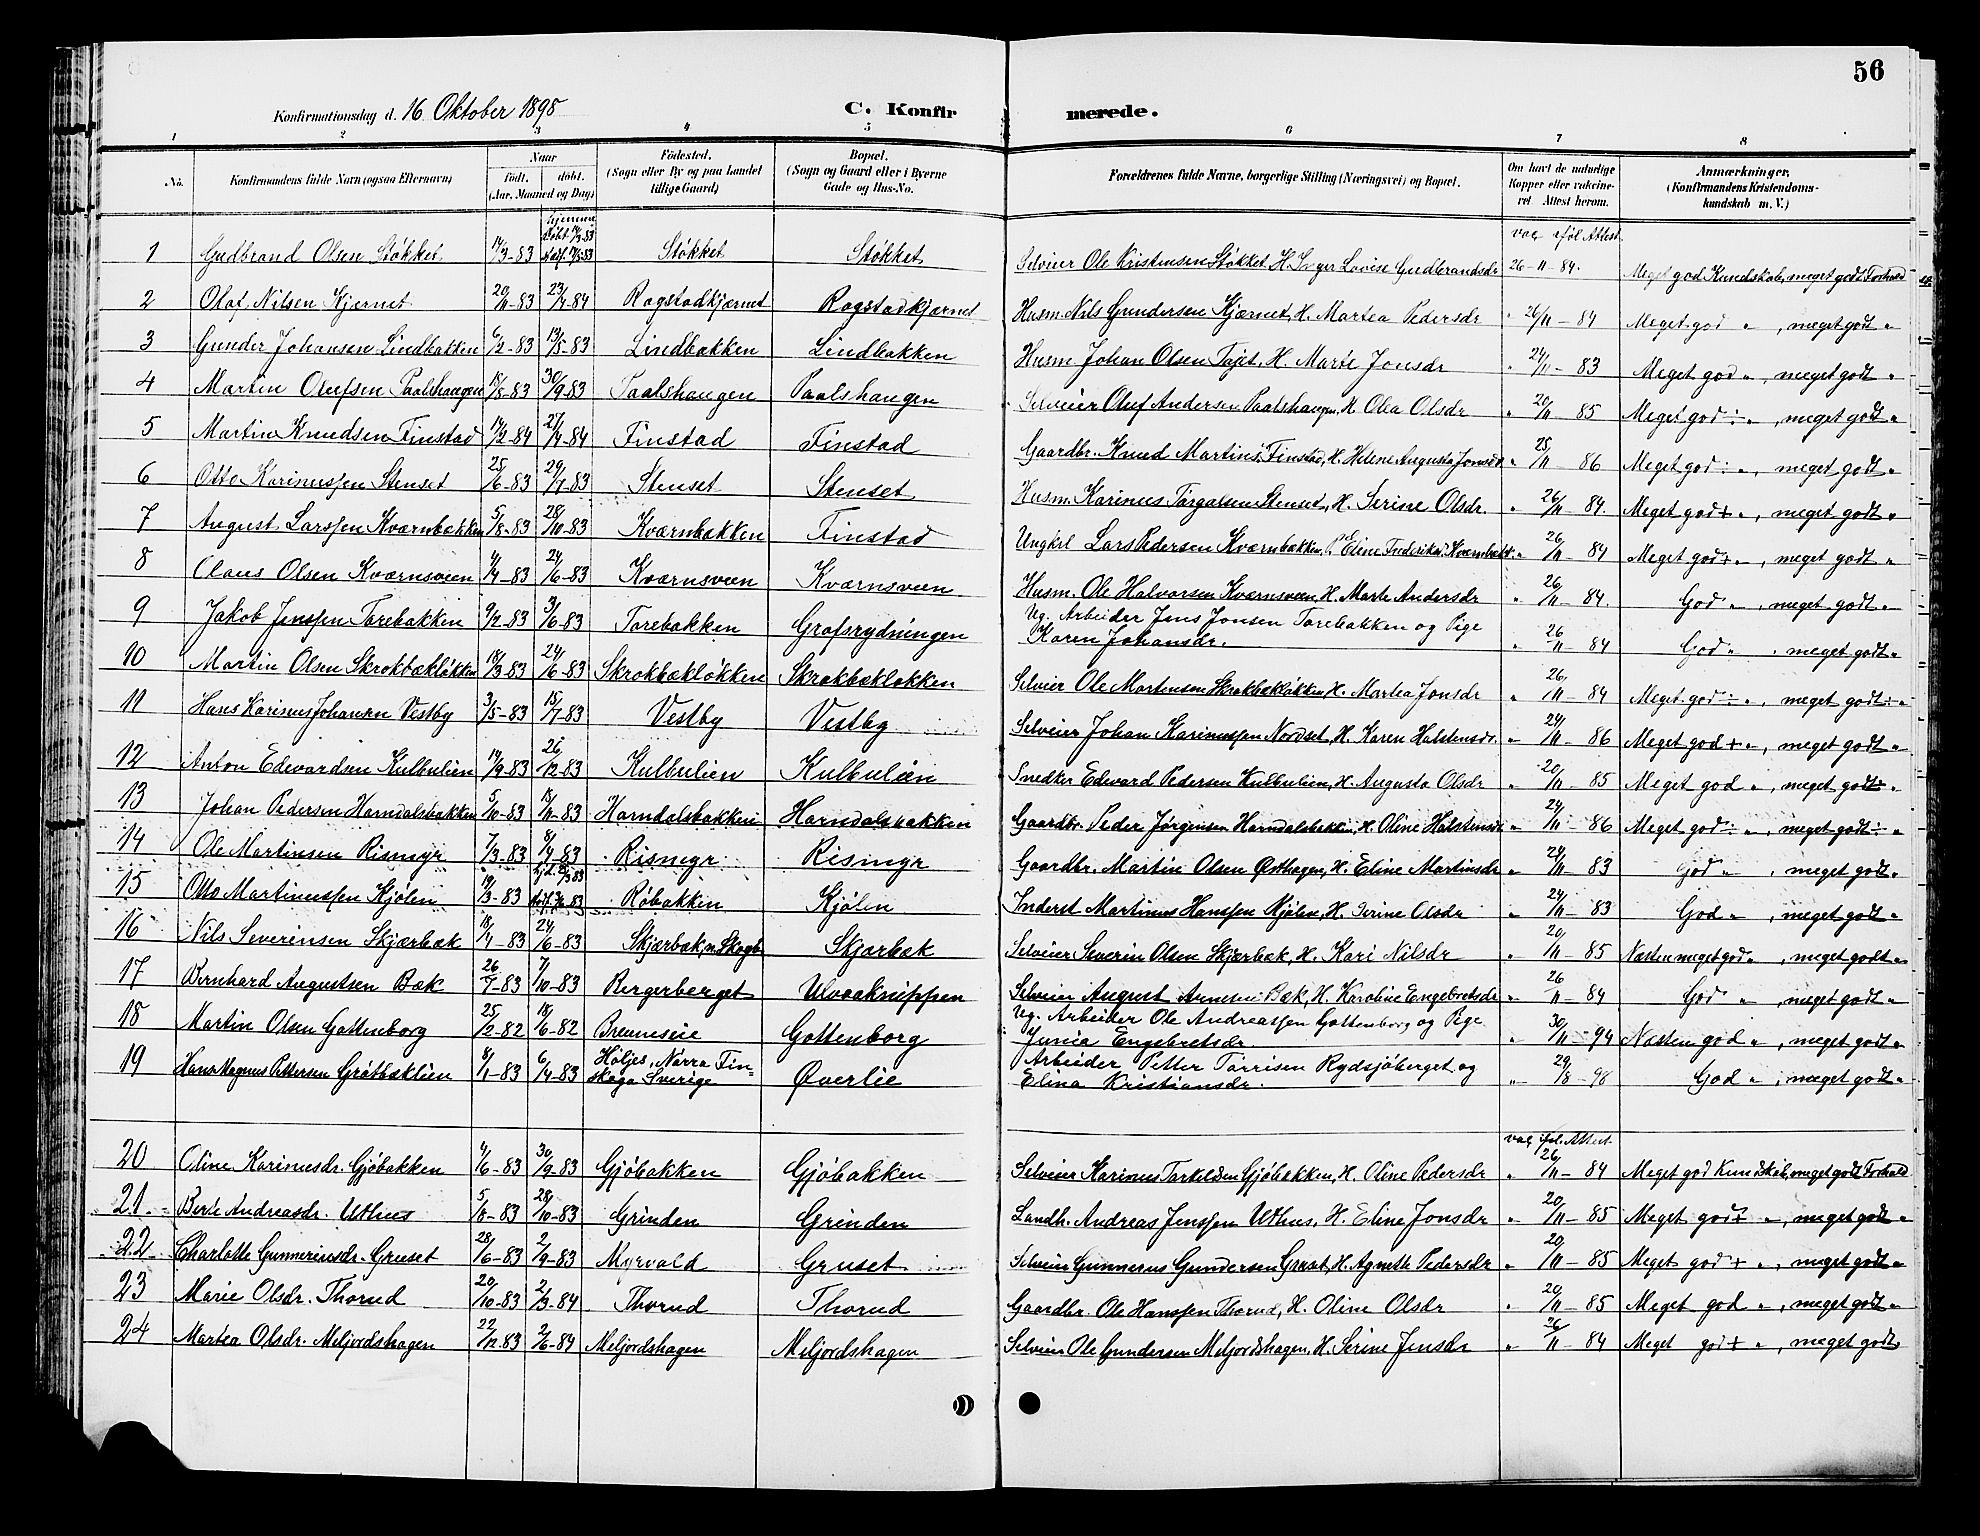 56
Konfirmationsdag d. 16 Oktober 1898 C. Konfirmerede.
1 2 3 4 5 6 7 8
No. Konfirmandens fulde Navn (ogsaa Efternavn) Naar født. døbt. (Aar, Maaned og Dag) Fødested. (Sogn eller By og paa Landet tillige Gaard) Bopæl. (Sogn og Gaard eller i Byerne Gade og Hus-No. Forældrenes fulde Navne, borgerlige Stilling (Næringsvei) og Bopæl. Om havt de naturlige Kopper eller vaccineret Attest herom. Anmærkninger. (Konfirmandens Kristendomskundskab m. V.)
1 Gudbrand Olsen Støkket 14/3-83 hjemmedøbt Støkket Støkket Selveier Ole Kristensen Støkket, H. Inger Lovise Gudbrandsdr vac. iføl. Attest 26-11-84. Meget god Kundskab, meget godt Forhold
2 Olaf Nilsen Kjernet 20/11-83 23/4-84 Rogstadkjærnet Rogstadkjærnet Husm. Nils Gundersen Kjærnet, H. Martea Pedersdr " 26/11-84 Meget god " , meget godt "
3 Gunder Johansen Lindbakken 6/2-83 13/5-83 Lindbakken Lindbakken Husm. Johan Olsen H. Marte Jonsdr " 24/11-83 Meget god " , meget godt "
4 Martin Olufsen Paalshaugen 30/9-83 Paalshaugen Paalshaugen Selveier Oluf Andersen Paalshaugen, H. Olea Olsdr " 20/11-85 Meget god ÷ " , meget godt "
5 Martin Knudsen Finstad 14/2-84 27/4-84 Finstad Finstad Gaardbr. Knud Martins. Finstad, H. Helene Augusta Jonsdr " 25/11-86 Meget god ÷ " , meget godt "
6 Otto Karinussen Stenset 25/6-83 29/7-83 Stenset Stenset Husm. Karinus Torgalsen Stenset, H. Serine Olsdr. " 26/11-84. Meget god + " , meget godt "
7 August Larssen Kværnbækken 5/8-83 28/10-83 Kværnbækken Finstad Ungkrl Lars Pedersen Kværnbækken, Eline " 26/11-84 Meget god + " , meget godt "
8 Claus Olsen Kværnsveen 4/4-83 24/6-83 Kværnsveen Kværnsveen Husm. Ole Halvorsen Kværnsveen, H. Marte Andersdr " 26/11-84. God " , meget godt "
9 Jakob Jenssen Torebakken 9/2-83 3/6-83 Torebakken Grafsrydningen Ug. Arbeider Jens Jonsen Torebakken og Pige
Karen Johansdr. " 26/11-84 God " , meget godt "
10 Martin Olsen Skrokbækløkken 18/3-83 24/6-83 Skrokbækløkken Skrokbækløkken Selveier Ole Mortensen Skrokbækløkken, H. Martea Jonsdr " 26/11-84 Meget god ÷ " , meget godt ÷ "
11 Hans Karinus Johansen Vestby 3/5-83 15/7-83 Vestby Vestby Selveier Johan Karinussen Nordset, H. Karen Halstensdr. " 24/11-86 Meget god + " , meget godt "
12 Anton Edvardsen Kulbulien 14/9-83 26/12-83 Kulbulien Kulbulien Snedker Edvard Pedersen Kulbulien, H. Augusta Olsdr " 20/11-85 Meget god " , meget godt "
13 Johan Pedersen Harndalsbakken 5/10-83 18/11-83 Harndalsbakken Harndalsbakken Gaardbr. Peder Jørgensen Harndalsbakken, H. Oline Halstensdr " 24/11-86 Meget god ÷ " , meget godt ÷ "
14 Ole Martinsen Rismyr 7/3-83 8/4-83 Rismyr Rismyr Gaardbr. Martin Olsen Østhagen, H. Eline Martinsdr " 24/11-83 God " , meget godt "
15 Otto Martinussen Kjølen 14/3-83 Røbakken Kjølen Inderst Martinus Hanssen Kjølen, H. Serine Olsdr " 24/11-83 God " , meget godt "
16 Nils Severinsen Skjærbæk 18/4-83 24/6-83 Skjærbæk, n. Skogb. Skjærbæk Selveier Severin Olsen Skjærbæk, H. Kari Nilsdr " 20/11-85 Næsten meget god " , meget godt "
17 Bernhard Augustsen Bæk 26/7-83 7/10-83 Bergerberget Ulvaaknippen Selveier August Arnesen Bæk, H. Karoline Engebretsdr " 26/11-84 God " , meget godt "
18 Martin Olsen Gottenborg 25/2-82 18/6-82 Brenneseie Gottenborg Ug. Arbeider Ole Andreassen Gottenborg og Pige
Junia Engebretsdr. " 30/11-94 Næsten god " , meget godt "
19 Hans Magnus Pettersen Grøtbæklien 8/1-83 6/4-83 Høljes, Norra Finskoga Sverige Øverlie Arbeider Petter Tørrisen Rydsjøberget og
Elina Kristiansdr. " 29/8-98 God " , meget godt "
20 Oline Karinusdr. Gjøbakken 4/6-83 30/9-83 Gjøbakken Gjøbakken Selveier Karinus Tarkeldsen Gjøbakken, H. Oline Pedersdr vac. iføl. Attest " 26/11-84 Meget god Kundskab, meget godt Forhold
21 Berte Andreasdr. Uthus 5/8-83 28/10-83 Grinden Grinden Landh. Andreas Jenssen Uthus, H. Eline Jonsdr " 20/11-85 Meget god + " , meget godt "
22 Charlotte Gunneriusdr. Gruset 28/6-83 2/9-83 Myrvold Gruset Selveier Gunnerus Gundersen Gruset, H. Agnethe Pedersdr " 20/11-85 Meget god + " , meget godt "
23 Marie Olsdr. Thorud 20/10-83 2/3-84 Thorud Thorud Gaardbr. Ole Hanssen Thorud, H. Oline Olsdr " 20/11-85 Meget god " , meget godt "
24 Martea Olsdr. Meljordshagen 22/12-83 2/6-84 Meljordshagen Meljordshagen Selveier Ole Gundersen Meljordshagen, H. Serine Jensdr " 26/11-84 Meget god + " , meget godt